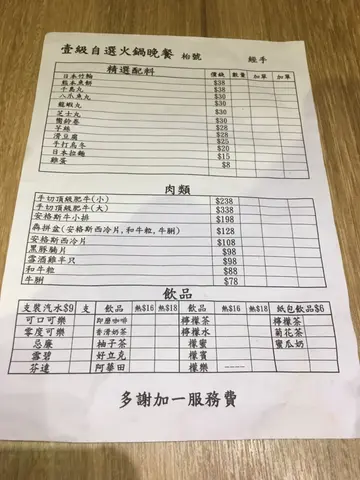 壹級自選火鍋晚餐 枱號 經手
精選配料 價錢 數量 加單 加單
日本竹輪 $38
龍本魚餅 $38
千島丸 $38
八爪魚丸 $30
龍蝦丸 $30
芝士丸 $30
響鈴卷 $30
芋絲 $28
滑豆腐 $28
手打烏冬 $25
日本拉麵 $20
雞蛋 $15
$8
肉類
手切頂級肥牛(小) $238
手切頂級肥牛(大) $338
安格斯牛小排 $198
犇拼盆(安格斯西冷片,和牛粒,牛脷) $128
安格斯西冷片 $108
黑豚腩片 $98
雪酒雞半只 $98
和牛粒 $88
牛脷 $78
飲品
支裝汽水$9 支 飲品 熱$16 熱$18 飲品 熱$16 熱$18 紙包飲品$6
可口可樂 即磨咖啡 檸檬茶 檸檬茶
零度可樂 香滑奶茶 檸檬水 菊花茶
忌廉 柚子茶 檸蜜 蜜瓜奶
雪碧 好立克 檸賓
芬達 阿華田 檸樂 ----
多謝加一服務費